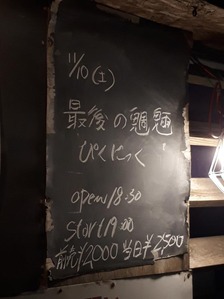 11/10(土)
最後の魑魅
ぴくにっく
open 18:30
start 19:00
前売¥2000 当日¥2500